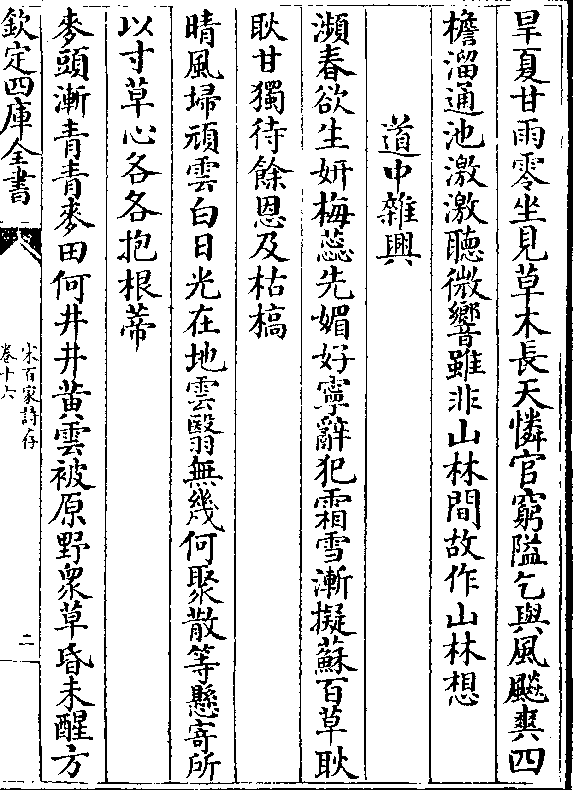 旱夏甘雨零坐見草木長天憐官窮隘乞與風飈爽四
檐溜通池激激聽微響雖非山林間故作山林想
道中雜興
瀕春欲生妍梅蕊先媚好寧辭犯霜雪漸擬蘇百草耿
耿甘獨待餘恩及枯槁
晴風埽頑雲白日光在地雲翳無幾何聚散等懸寄所
以寸草心各各抱根蒂
麥頭漸青青麥田何井井黄雲被原野衆草昏未醒方
欽定四庫全書
宋百家詩存
卷十六
二